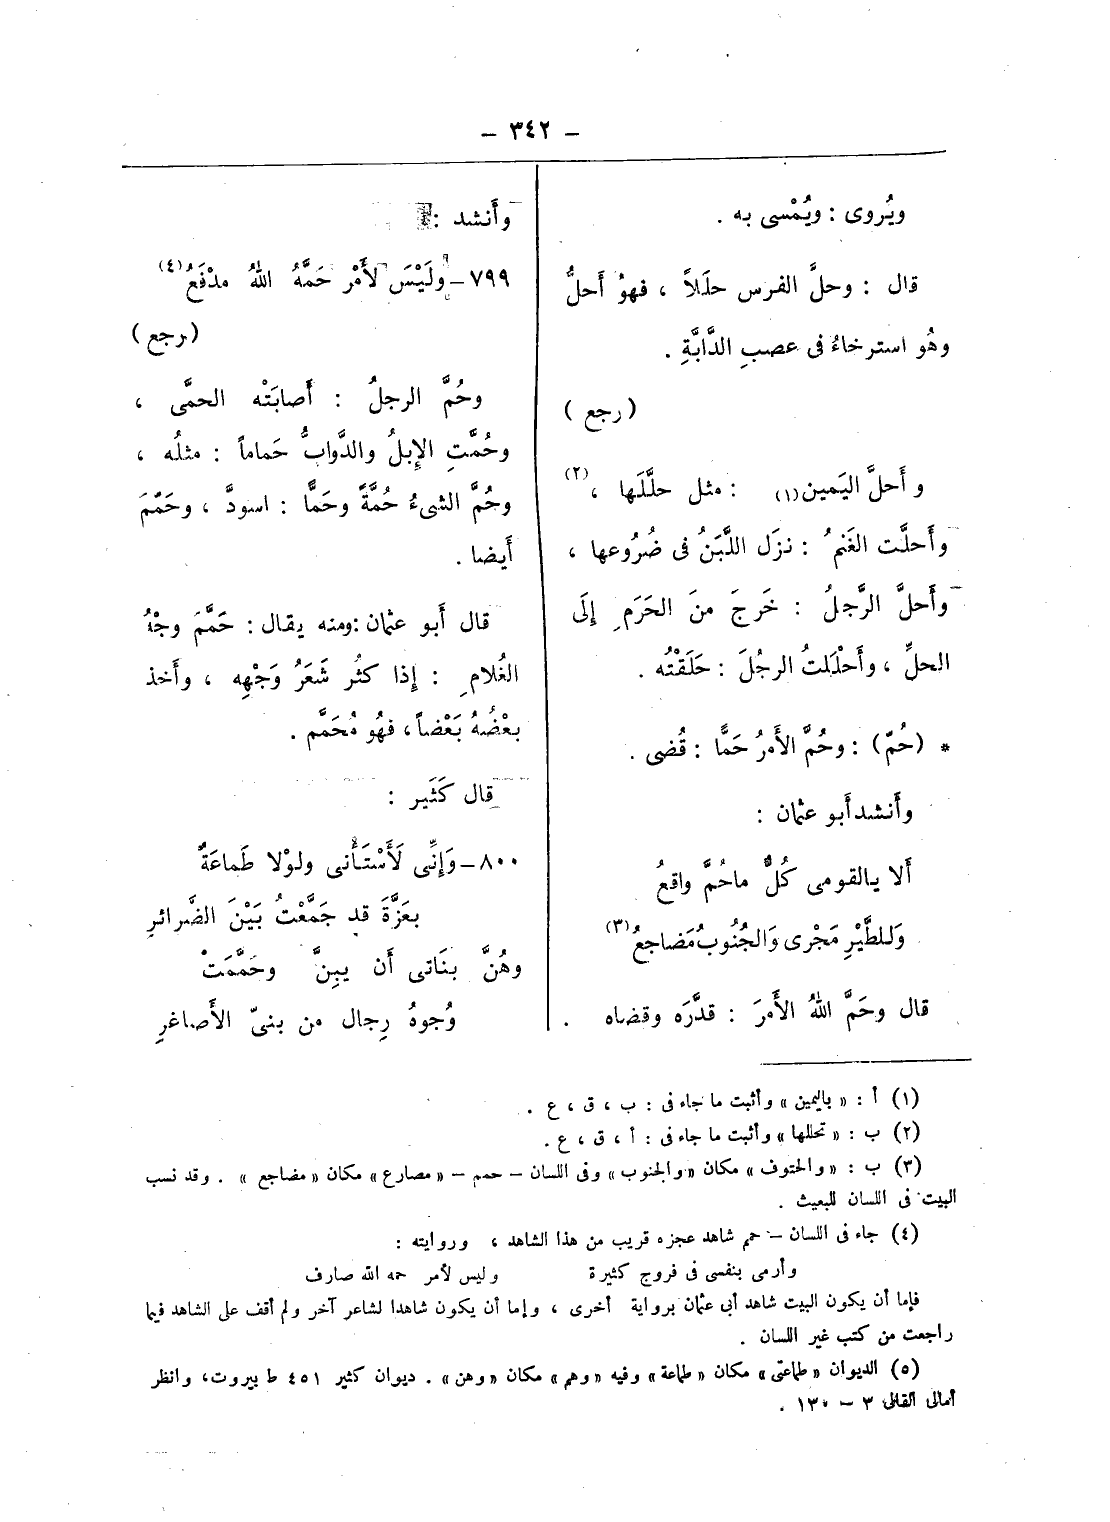 – ٣٤٢ –
ويُروى : ويُمْسى به .
قال : وحلَّ الفرس حلَلاً ، فهوُ أَحلُّ
وهُو استرخاءُ فى عصبِ الدَّابَّةِ .
( رجع )
و أَحلَّ اليَمين(١) : مثل حلَّلَها ،(٢)
وأَحلَّت الغَنمُ : نزَل اللَّبَنُ فى ضُرُوعها ،
وأَحلَّ الرَّجلُ : خَرجَ منَ الحَرَمِ إِلَى
الحلِّ ، وأَحْلَلتُ الرجُلَ : حَلَقْتُه .
* (حُمّ) : وحُمَّ الأَمرُ حَمًّا : قُضى .
وأَنشد أَبو عثمان :
أَلا يالقومى كُلُّ ماحُمَّ واقعُ
وَللطَّيْرِ مَجْرى وَالجُنُوبُ مَضاجعُ(٣)
قال وحَمَّ اللهُ الأَمرَ : قدَّرَه وقضاه .
وأَنشد :
٧٩٩– ولَيْسَ لأَمْر حَمَّهُ اللهُ مدْفَعُ(٤)
(رجع)
وحُمَّ الرجلُ : أَصابَتْه الحمَّى ،
وحُمَّتِ الإِبلُ والدَّوابُّ حَماماً : مثلُه ،
وحُمَّ الشىءُ حُمَّةً وحَمًّا : اسودَّ ، وحَمَّمَ
أَيضا .
قال أَبو عثمان :ومنه يقال : حَمَّمَ وجْهُ
الغُلامِ : إِذا كثُر شَعَرُ وَجْهِه ، وأَخذ
بعْضُهُ بَعْضاً ، فهُو مُحَمَّم .
قال كَثَير :
٨٠٠– وَإِنِّى لَأَسْتَأْنى ولوْلا طَماعَةٌ
بعَزَّةَ قد جَمَّعْتُ بَيْنَ الضَّرائرِ
وهُنَّ بنَاتى أَن يبِنَّ وحَمَّمَتْ
وُجوهُ رِجال من بنىّ الأَصاغرِ
(١) أ : « باليمين » وأثبت ما جاء فى : ب ، ق ، ع .
(٢) ب : « تحللها » وأثبت ما جاء فى : أ ، ق ، ع .
(٣) ب : « والحتوف » مكان « والجنوب » وفى اللسان – حمم – « مصارع » مكان « مضاجع » . وقد نسب
البيت فى اللسان للبعيث .
(٤) جاء فى اللسان – حمم شاهد عجزه قريب من هذا الشاهد ، وروايته :
وأرمى بنفسى فى فروج كثيرة وليس لأمر حمه الله صارف
فإما أن يكون البيت شاهد أبى عثمان برواية أخرى ، وإما أن يكون شاهدا لشاعر آخر ولم أقف على الشاهد فيما
راجعت من كتب غير اللسان .
(٥) الديوان « طماعتى » مكان « طماعة » وفيه « وهم » مكان « وهن » . ديوان كثير ٤٥١ ط بيروت ، وانظر
أمالى القالى ٣ – ١٣٠ .